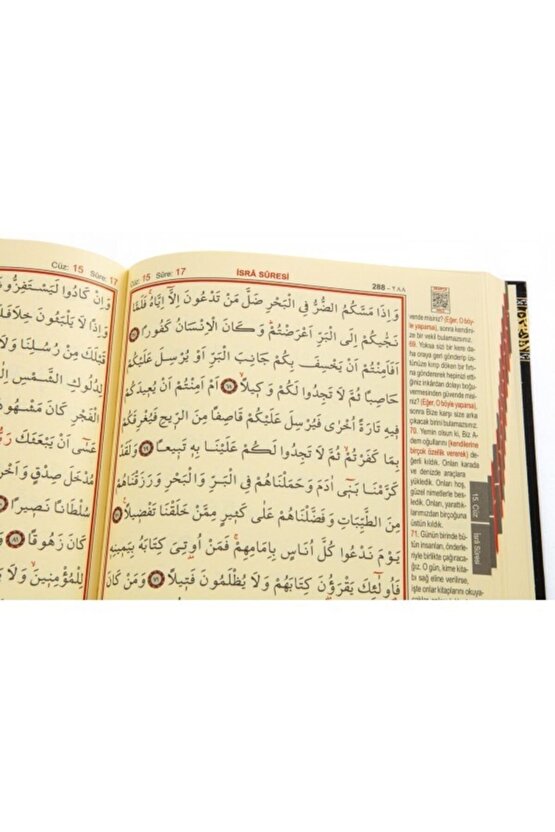 Cüz: 15 Sûre: 17
وَاِنْ كَادُوا لَيَسْتَفِزُّو
وَاِذًا لَا يَلْبَثُونَ خِلَافَ
قَبْلَكَ مِنْ رُسُلِنَا وَلَا
لِدُلُوكِ الشَّمْسِ اِ
الْفَجْرِ كَانَ مَشْهُو
عَسٰٓى اَنْ يَبْعَثَكَ رَبُّ
مُدْخَلَ صِدْقٍ وَاَخْر
سُلْطَانًا نَصِيرًا
كَانَ زَهُوقًا
لِلْمُؤْمِنِينَ وَلَا يَز
Cüz: 15 Sûre: 17 İSRÂ SÛRESİ 288 - ٢٨٨
وَاِذَا مَسَّكُمُ الضُّرُّ فِي الْبَحْرِ ضَلَّ مَنْ تَدْعُونَ اِلَّٓا اِيَّاهُ فَلَمَّا
نَجّٰيكُمْ اِلَى الْبَرِّ اَعْرَضْتُمْ وَكَانَ الْاِنْسَانُ كَفُورًا
اَفَاَمِنْتُمْ اَنْ يَخْسِفَ بِكُمْ جَانِبَ الْبَرِّ اَوْ يُرْسِلَ عَلَيْكُمْ
حَاصِبًا ثُمَّ لَا تَجِدُوا لَكُمْ وَكِيلًا ﴿٦٨﴾ اَمْ اَمِنْتُمْ اَنْ يُعِيدَكُمْ
فِيهِ تَارَةً اُخْرٰى فَيُرْسِلَ عَلَيْكُمْ قَاصِفًا مِنَ الرِّيحِ فَيُغْرِقَكُمْ
بِمَا كَفَرْتُمْ ثُمَّ لَا تَجِدُوا لَكُمْ عَلَيْنَا بِهِ تَبِيعًا ﴿٦٩﴾ وَلَقَدْ
كَرَّمْنَا بَنِٓي اٰدَمَ وَحَمَلْنَاهُمْ فِي الْبَرِّ وَالْبَحْرِ وَرَزَقْنَاهُمْ
مِنَ الطَّيِّبَاتِ وَفَضَّلْنَاهُمْ عَلٰى كَثِيرٍ مِمَّنْ خَلَقْنَا تَفْضِيلًا ﴿٧٠﴾
يَوْمَ نَدْعُوا كُلَّ اُنَاسٍ بِاِمَامِهِمْ فَمَنْ اُوتِيَ كِتَابَهُ بِيَمِينِهِ
فَاُولٰٓئِكَ يَقْرَؤُنَ كِتَابَهُمْ وَلَا يُظْلَمُونَ فَتِيلًا ﴿٧١﴾ وَمَنْ كَانَ
vende misiniz? (Eğer, O böy-
le yapamsa), sonra kendini-
ze bir vekil bulamazsınız.
69. Yoksa sizi bir kere da-
ha oraya geri gönderip üs-
tünüze kırıp döken bir fırtı-
na göndererek hepinizi etti-
ğiniz inkârdan dolayı boğu-
vermesinden güvende misi-
niz? (Eğer, O böyle yaparsa),
sonra Bize karşı size arka
çıkacak birini bulamazsınız.
70. Yemin olsun ki, Biz A-
dem oğullarını (kendilerine
birçok özellik vererek) de-
ğerli kıldık. Onları karada
ve denizde araçlara
yükledik. Onları hoş,
güzel nimetlerle bes-
ledik. Onları, yarattık-
larımızdan birçoğuna
üstün kıldık.
71. Günün birinde bü-
tün insanları, önderle-
riyle birlikte çağıraca-
ğız. O gün, kime kita-
bı sağ eline verilirse,
işte onlar kitaplarını okuya-
15. Cüz
İsrâ Sûresi